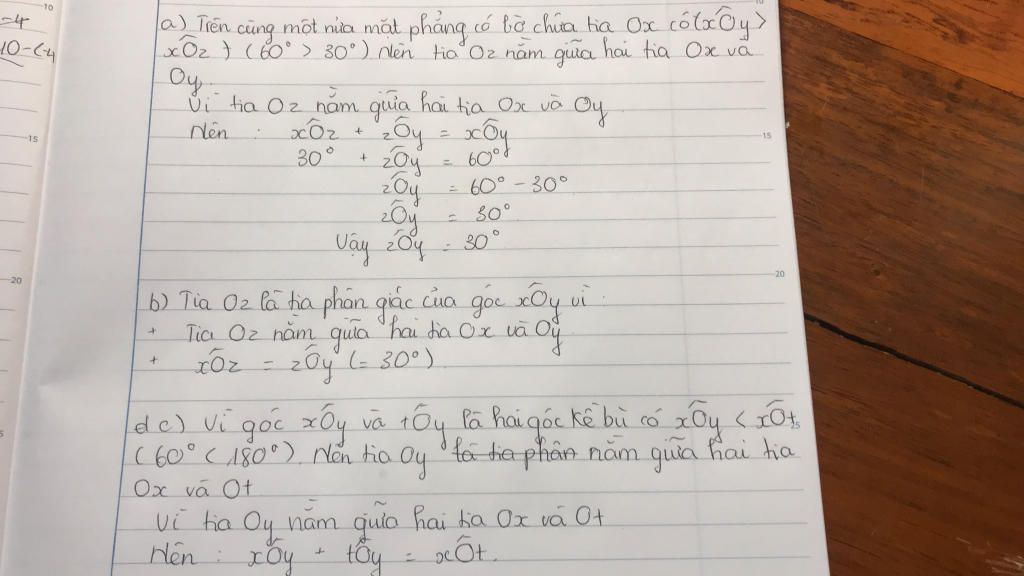 =4
10-(-4
10
15
20
a) Trên cùng một nửa mặt phẳng có bờ chứa tia Ox có (xÔy >
xÔz) (60° > 30°) Nên tia Oz nằm giữa hai tia Ox và
Oy.
Vì tia Oz nằm giữa hai tia Ox và Oy
Nên : xÔz + zÔy = xÔy
30° + zÔy = 60°
zÔy = 60° - 30°
zÔy = 30°
Vậy zÔy = 30°
15
20
b) Tia Oz là tia phân giác của góc xÔy vì :
+ Tia Oz nằm giữa hai tia Ox và Oy
+ xÔz = zÔy (= 30°)
d c) Vì góc xÔy và tÔy là hai góc kề bù có xÔy < xÔt
(60° < 180°). Nên tia Oy là tia phân nằm giữa hai tia
Ox và Ot
Vì tia Oy nằm giữa hai tia Ox và Ot
Nên : xÔy + tÔy = xÔt.